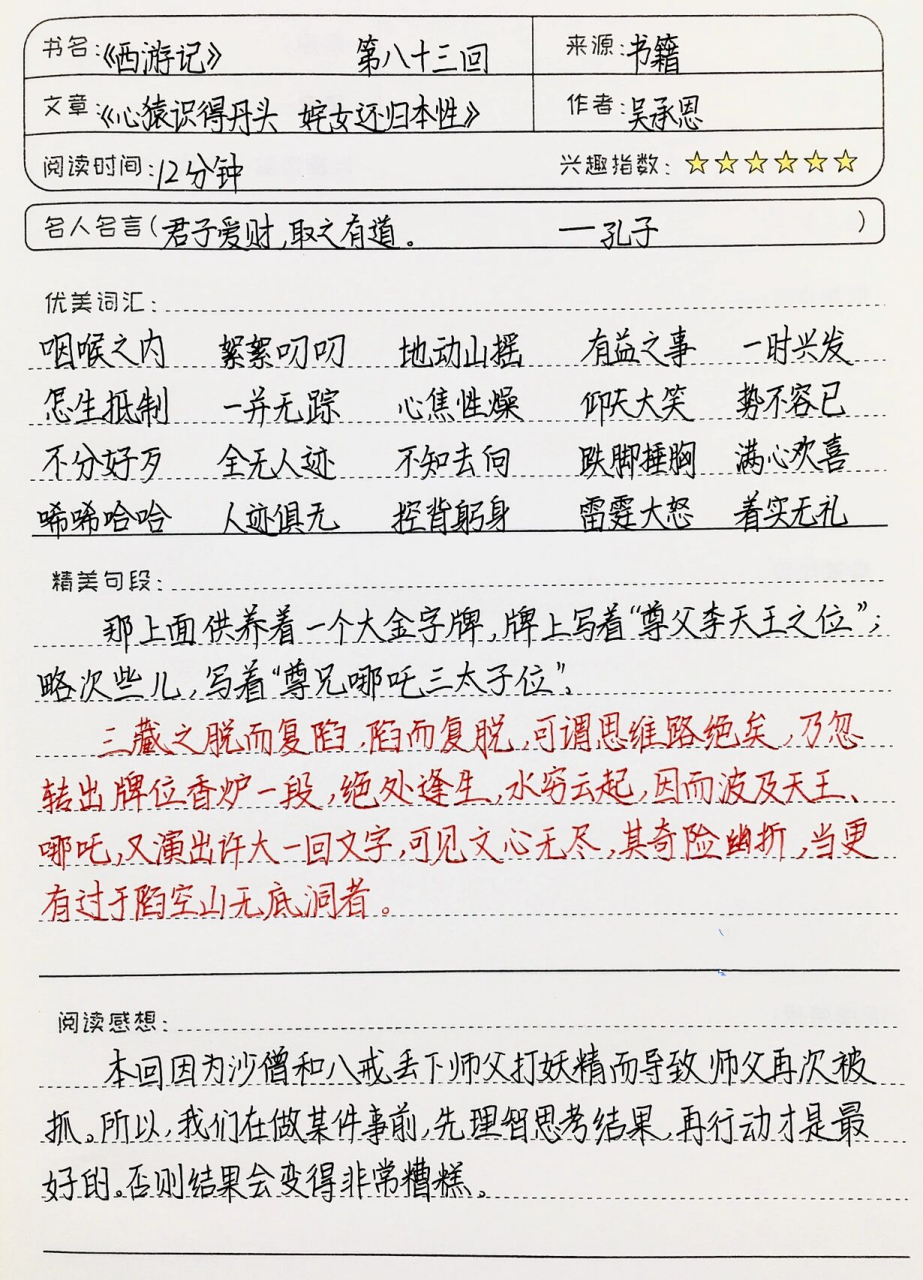 书名:《西游记》 第八十三回 来源:书籍
文章:《心猿识得丹头 姹女还归本性》 作者:吴承恩
阅读时间:12分钟 兴趣指数:
名人名言(君子爱财,取之有道。 —孔子)
优美词汇:
咽喉之内 絮絮叨叨 地动山摇 有益之事 一时兴发
怎生抵制 一并无踪 心焦性燥 仰天大笑 势不容已
不分好歹 全无人迹 不知去向 跌脚捶胸 满心欢喜
唏唏哈哈 人迹俱无 控背躬身 雷霆大怒 着实无礼
精美句段:
那上面供养着一个大金字牌,牌上写着“尊父李天王之位”;
略次些儿,写着“尊兄哪吒三太子位”。
三藏之脱而复陷,陷而复脱,可谓思维路绝矣,乃忽
转出牌位香炉一段,绝处逢生,水穷云起,因而波及天王、
哪吒,又演出许大一回文字,可见文心无尽,其奇险幽折,当更
有过于陷空山无底洞者。
阅读感想:
本回因为沙僧和八戒丢下师父打妖精而导致师父再次被
抓。所以,我们在做某件事前,先理智思考结果,再行动才是最
好的。否则结果会变得非常糟糕。